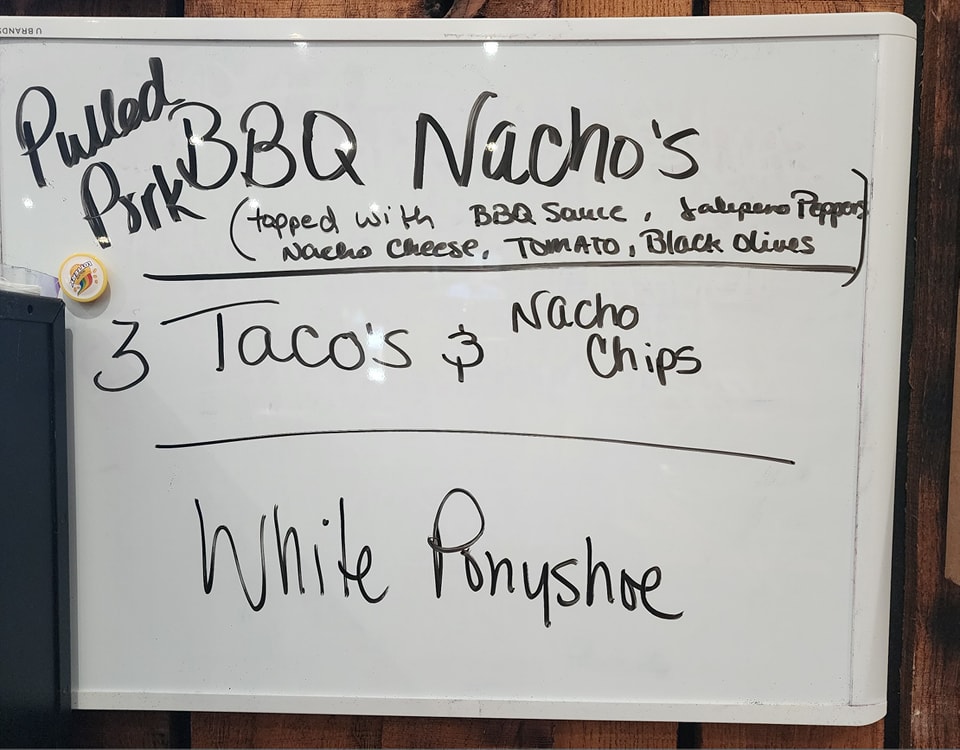 U BRANDS
Pulled
Pork
BBQ Nacho's
(topped with BBQ Sauce, Jalepeno Peppers
Nacho Cheese, TOMATO, Black Olives)
3 Taco's & Nacho
Chips
White Ponyshoe